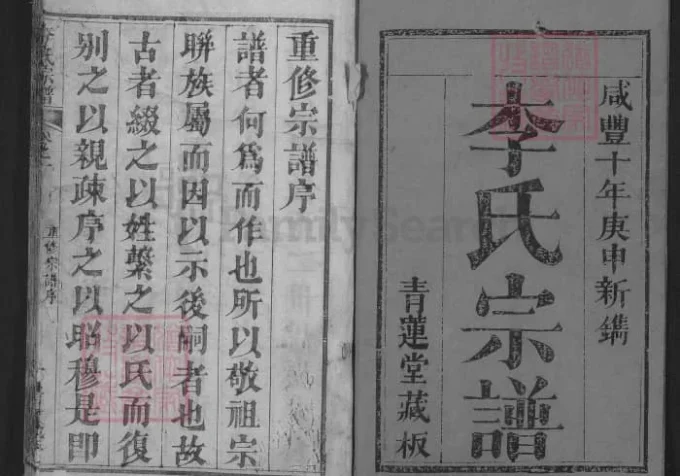 咸豐十年庚申新鐫
李氏宗譜
青蓮堂藏板
重修宗譜序
譜者何為而作也所以敬祖宗
聯族屬而因以示後嗣者也故
古者綴之以姓繫之以氏而復
別之以親疎序之以昭穆是即
李氏宗譜
重修宗譜序
FamilySearch